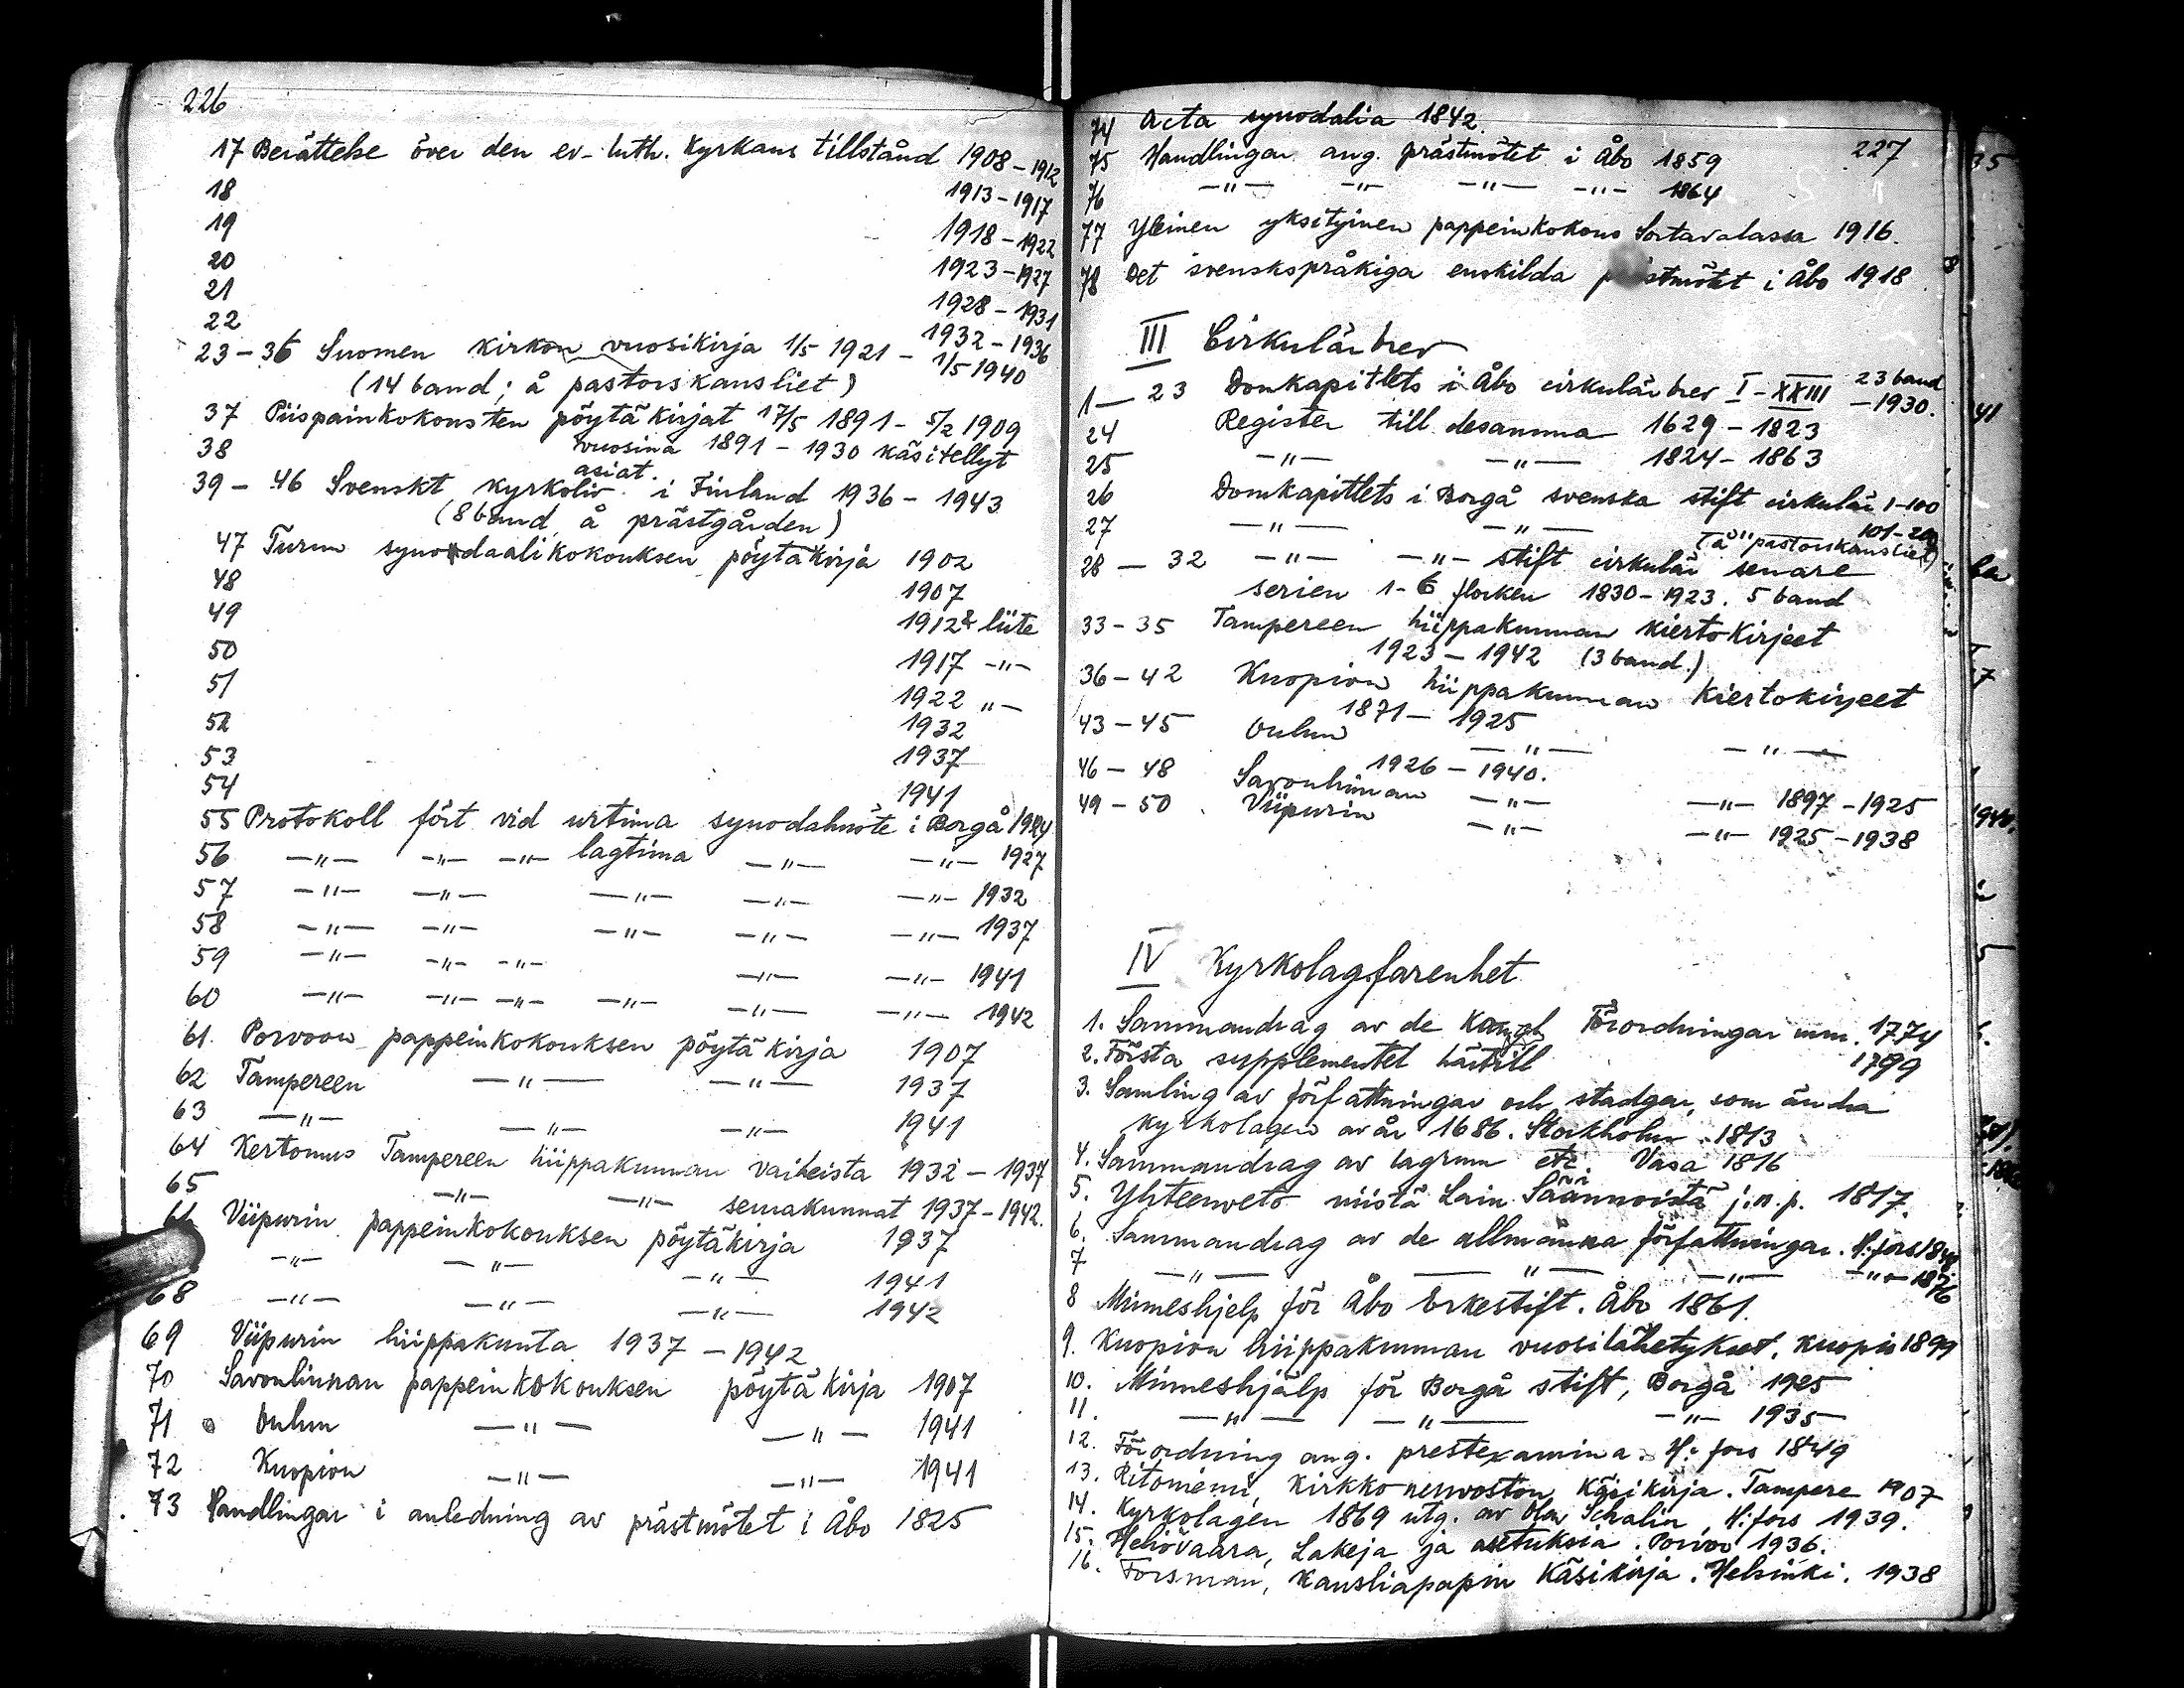 226
17 Berättelse över den ev-luth. Kyrkans tillstånd 1908-1912
18 1913-1917
19 1918-1922
20 1923-1927
21 1928-1931
22 1932-1936
23-36 Suomen kirkon vuosikirja 1/5 1921 - 1/5 1940
(14 band; å pastorskansliet)
37 Piispainkokousten pöytäkirjat 17/5 1891 - 5/2 1909
38 vuosina 1891 - 1930 käsitellyt
asiat.
39 - 46 Svenskt kyrkoliv i Finland 1936 - 1943
(8 band å prästgården)
47 Turun synodaalikokouksen pöytäkirja 1902
48 1907
49 1912 & liite
50 1917 -"-
51 1922 "-
52 1932
53 1937
54 1941
55 Protokoll fört vid urtima synodalmöte i Borgå 1924
56 -"- -"- -"- lagtima -"- -"- 1927
57 -"- -"- -"- -"- -"- 1932
58 -"- -"- -"- -"- -"- 1937
59 -"- -"- -"- -"- -"- 1941
60 -"- -"- -"- -"- -"- -"- 1942
61. Porvoon pappeinkokouksen pöytäkirja 1907
62 Tampereen -"- -"- 1937
63 -"- -"- -"- 1941
64 Kertomus Tampereen hiippakunnan vaiheista 1932 - 1937
65 -"- -"- seurakunnat 1937-1942.
66 Viipurin pappeinkokouksen pöytäkirja 1937
-"- -"- -"- 1941
68 -"- -"- -"- 1942
69 Viipurin hiippakunta 1937 - 1942
70 Savonlinnan pappeinkokouksen pöytäkirja 1907
71 Oulun -"- -"- 1941
72 Kuopion -"- -"- 1941
73 Handlingar i anledning av prästmötet i Åbo 1825
74 Acta synodalia 1842.
227
75 Handlingar ang. prästmötet i Åbo 1859
76 -"- -"- -"- -"- 1864
77 Yleinen yksityinen pappeinkokous Sortavalassa 1916.
78 Det svenskspråkiga enskilda prästmötet i Åbo 1918
III Cirkulärbrev
1 - 23 Domkapitlets i Åbo cirkulärbrev I - XXIII 23 band
- 1930.
24 Register till desamma 1629 - 1823
25 -"- -"- 1824 - 1863
26 Domkapitlets i Borgå svenska stift cirkulär 1-100
27 -"- -"- 101-200
(å pastorskansliet)
28 - 32 -"- -"- stift cirkulär senare
serien 1-6 flocken 1830-1923. 5 band
33-35 Tampereen hiippakunnan kiertokirjeet
1923 - 1942 (3 band.)
36-42 Kuopion hiippakunnan kiertokirjeet
1871 - 1925
43-45 Oulun -"- -"-
1926 - 1940.
46 - 48 Savonlinnan -"- -"- 1897 - 1925
49-50 Viipurin -"- -"- 1925 - 1938
IV Kyrkolagfarenhet
1. Sammandrag av de Kongl. Förordningar mm. 1774
2. Första supplementet härtill 1799
3. Samling av författningar och stadgar, som ändra
kyrkolagen av år 1686. Stockholm 1813
4. Sammandrag av lagrum etc. Vasa 1816
5. Yhteenveto niistä Lain Säännöistä j.n.p. 1817.
6. Sammandrag av de allmänna författningar. H:fors 1848
7 -"- -"- -"- -"- 1876
8 Minneshjelp för Åbo Erkestift. Åbo 1861.
9. Kuopion hiippakunnan vuosilähetykset. Kuopio 1899
10. Minneshjälp för Borgå stift, Borgå 1925
11. -"- -"- -"- 1935
12. Förordning ang. prestexamina. H:fors 1849
13. Ritoniemi, Kirkkoneuvoston Käsikirja. Tampere 1907
14. Kyrkolagen 1869 utg. av Olav Schalin, H:fors 1939.
15. Heliövaara, Lakeja ja asetuksia. Porvoo 1936.
16. Forsman, Kansliapapin Käsikirja. Helsinki. 1938